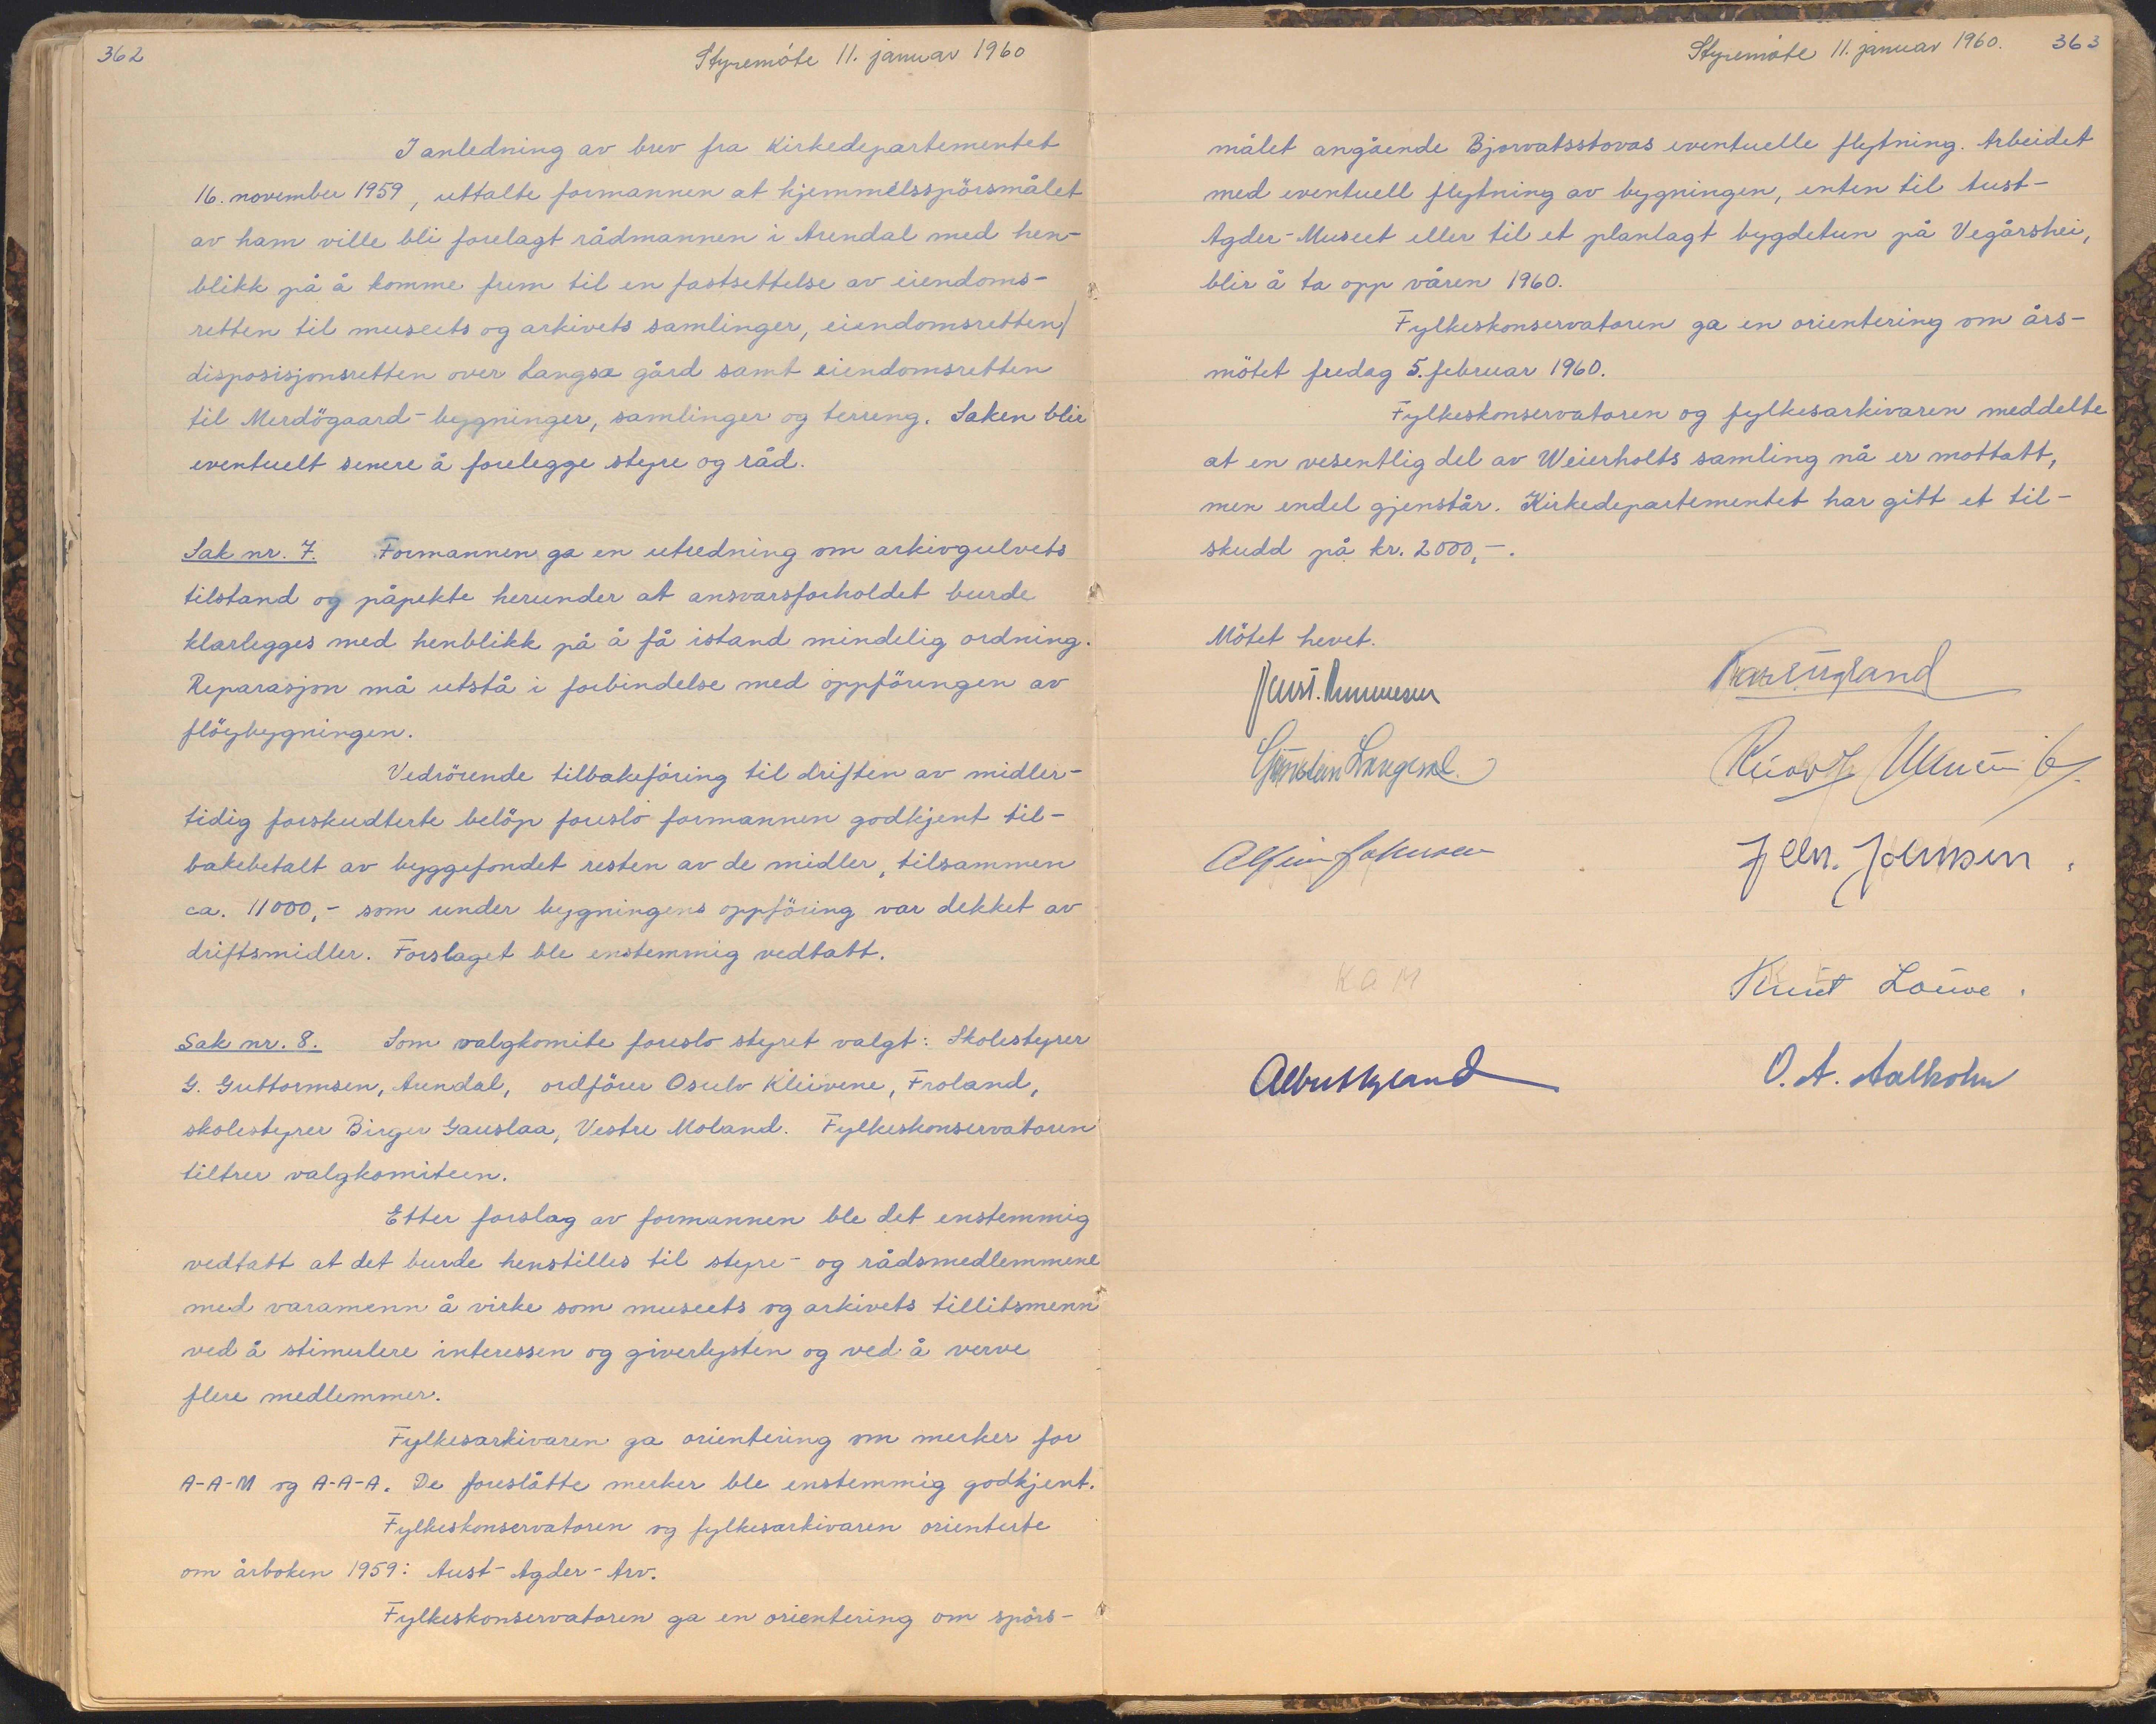 362
Styremöte 11. januar 1960
I anledning av brev fra Kirkedepartementet
16. november 1959, uttalte formannen at hjemmelsspörsmålet
av ham ville bli forelagt rådmannen i Arendal med hen-
blikk på å komme frem til en fastsettelse av eiendoms-
retten til museets og arkivets samlinger, eiendomsretten/
disposisjonsretten over Langsæ gård samt eiendomsretten
til Merdögaard-bygninger, samlinger og terreng. Saken blir
eventuelt senere å forelegge styre og råd.
Sak nr. 7. Formannen ga en utredning om arkivgulvets
tilstand og påpekte herunder at ansvarsforholdet burde
klarlegges med henblikk på å få istand mindelig ordning.
Reparasjon må utstå i forbindelse med oppföringen av
flöybygningen.
Vedrörende tilbakeföring til driften av midler-
tidig forskudterte belöp foreslo formannen godkjent til-
bakebetalt av byggefondet resten av de midler, tilsammen
ca. 11000,- som under bygningens oppföring var dekket av
driftsmidler. Forslaget ble enstemmig vedtatt.
Sak nr. 8. Som valgkomite foreslo styret valgt: Skolestyrer
G. Guttormsen, Arendal, ordförer Osulv Kleivene, Froland,
skolestyrer Birger Gauslaa, Vestre Moland. Fylkeskonservatoren
tiltrer valgkomiteen.
Etter forslag av formannen ble det enstemmig
vedtatt at det burde henstilles til styre- og rådsmedlemmene
med varamenn å virke som museets og arkivets tillitsmenn
ved å stimulere interessen og giverlysten og ved å verve
flere medlemmer.
Fylkesarkivaren ga orientering om merker for
A-A-M og A-A-A. De foreslåtte merker ble enstemmig godkjent.
Fylkeskonservatoren og fylkesarkivaren orienterte
om årboken 1959: Aust-Agder-Arv.
Fylkeskonservatoren ga en orientering om spörs-
Styremöte 11. januar 1960. 363
målet angående Bjorvatsstovas eventuelle flytning. Arbeidet
med eventuell flytning av bygningen, enten til Aust-
Agder-Museet eller til et planlagt bygdetun på Vegårshei,
blir å ta opp våren 1960.
Fylkeskonservatoren ga en orientering om års-
mötet fredag 5. februar 1960.
Fylkeskonservatoren og fylkesarkivaren meddelte
at en vesentlig del av Weierholts samling nå er mottatt,
men endel gjenstår. Kirkedepartementet har gitt et til-
skudd på kr. 2000,-.
Mötet hevet.
Johnsen.
KAM
Knut Louwe.
O. A. Aalholm